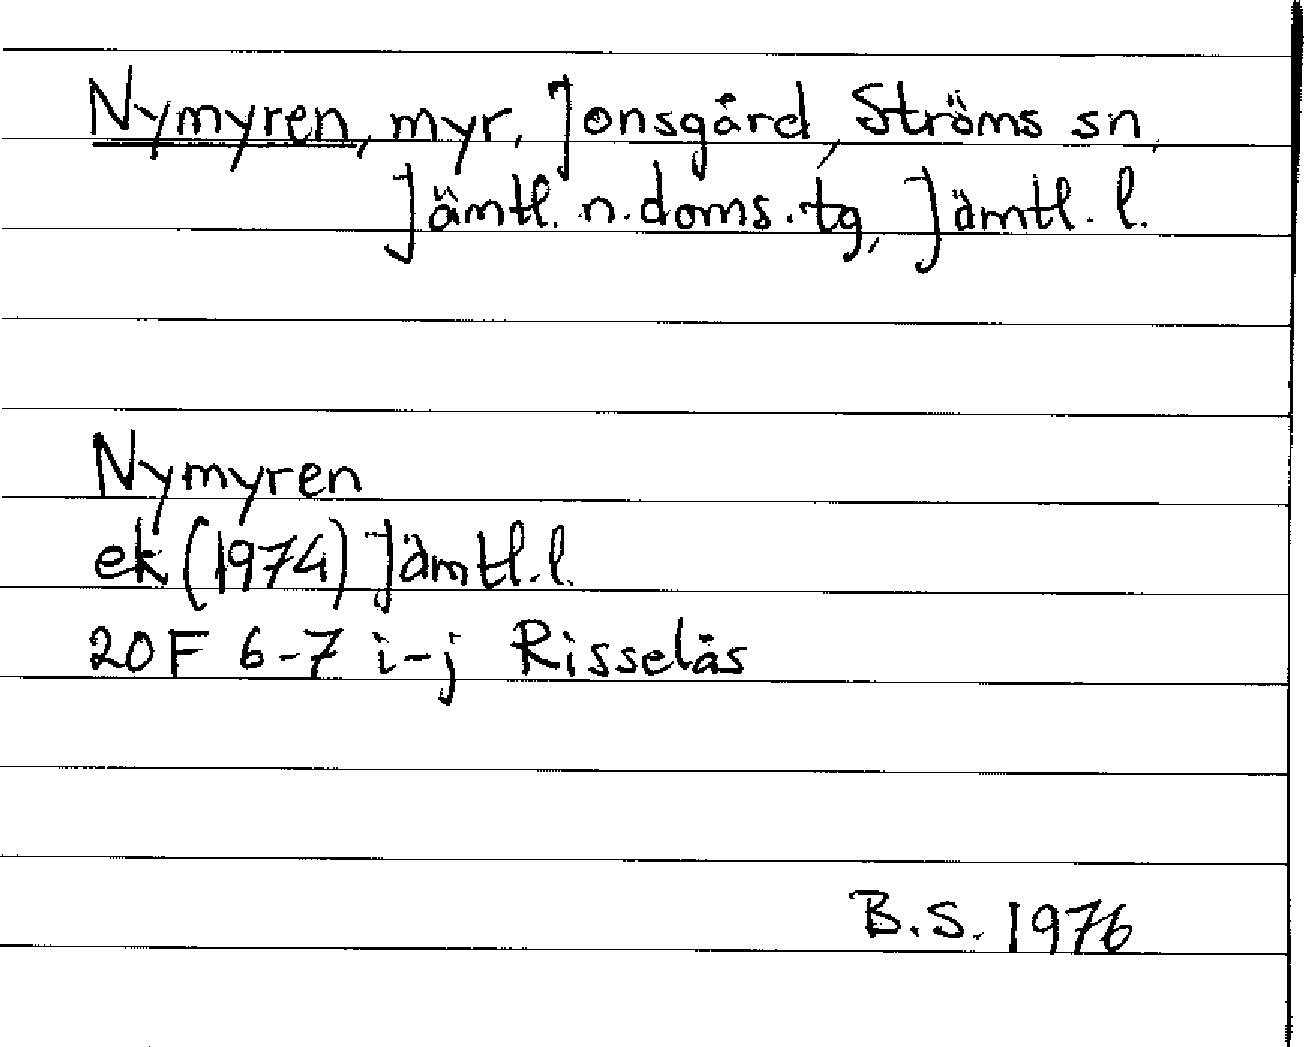 Nymyren, myr, Jonsgård, Ströms sn,
Jämtl. n. doms. tg, Jämtl. l.
Nymyren
ek (1974) Jämtl. l.
20F 6-7 i-j Risselås
B.S. 1976